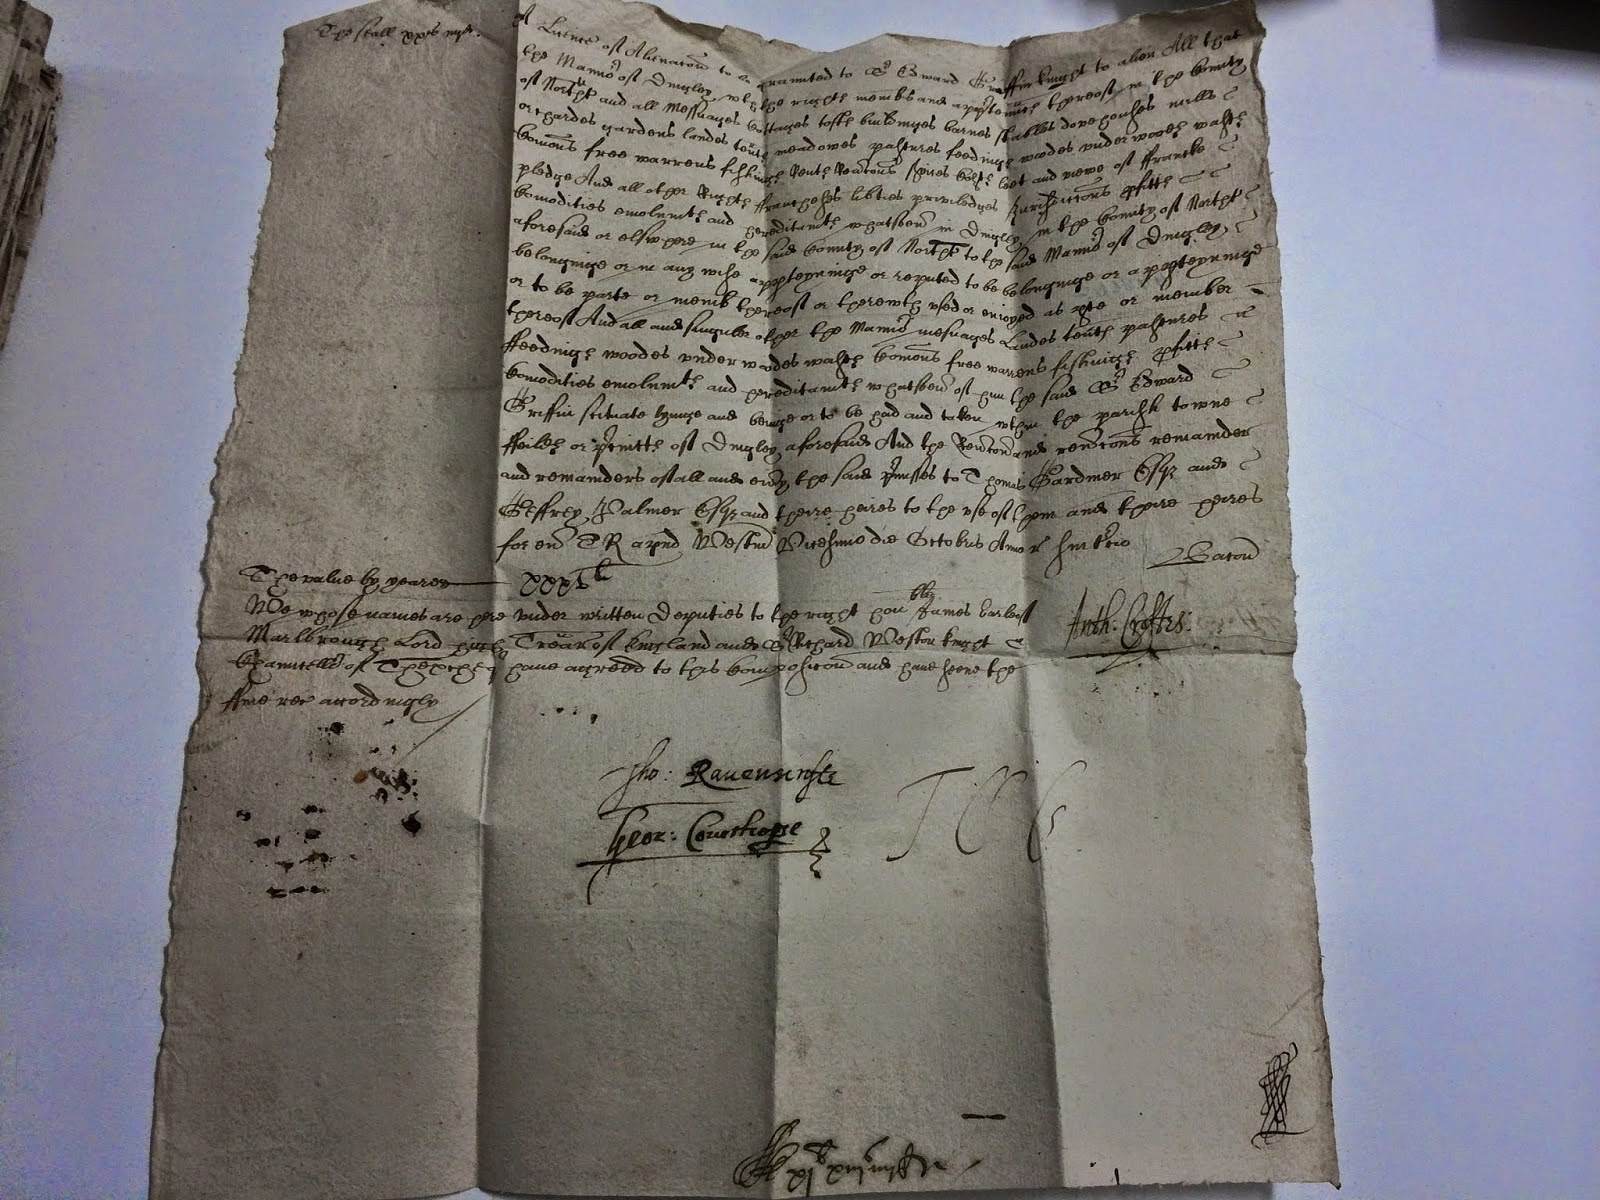 The seall xxs
A Licence of Alienacon to be graunted to Sr Edward Griffin knight to alien All that
the Mannor of Dingley wth the rightes membs and apptennces thereof in the County
of Northt and all Messuages Cottages toftes buildinges barnes stables dovehouses mills
orchardes gardens landes tentes meadowes pastures feedinges woodes underwoodes wastes
Comons free warrens fishinges Rentes Revcons leet and viewe of ffrancke
pledge And all other Rightes ffranchises libties priviledges Jurisdiccons pfittes
Comodities emolumtes and hereditamtes whatsoever in Dingley in the County of Northt
aforesaid or elswhere in the said County of Northt to the said Mannor of Dingley
belonginge or in any wise apperteyninge or reputed to be belonginge or apperteyninge
or to be parte or memb thereof or therewth used or enioyed as pte or member
thereof And all and singuler other the Mannor mesuages Landes tentes pastures
ffeedinges woodes underwoodes wastes Comons free warrens fishinges pfittes
Comodities emolumtes and hereditamtes whatsoever of him the said Sr Edward
Griffin scituate lyinge and beinge or to be had and taken wthin the parish towne
ffeildes or of Dingley aforesaid And the Revercon and revercons remainder
and remainders of all and every the said pmisses to Thomas Gardiner Esqr and
Geffrey Palmer Esqr and theire heires to the use of them and theire heires
for ever T R apud Westm Vicesimo die Octobris Anno r sui tercio
The value by yeare xxxs
We whose names are here under written Deputies to the right hoble James Earle of
Marlbrough Lord high Trear of England and Sr Richard Weston knight
Chauncellr of Thexcheqr have agreed to this Composicon and have seene the
ffine rec accordingly
Anth: Croftes:
Tho: Ravenscrofte
Geor: Courthope